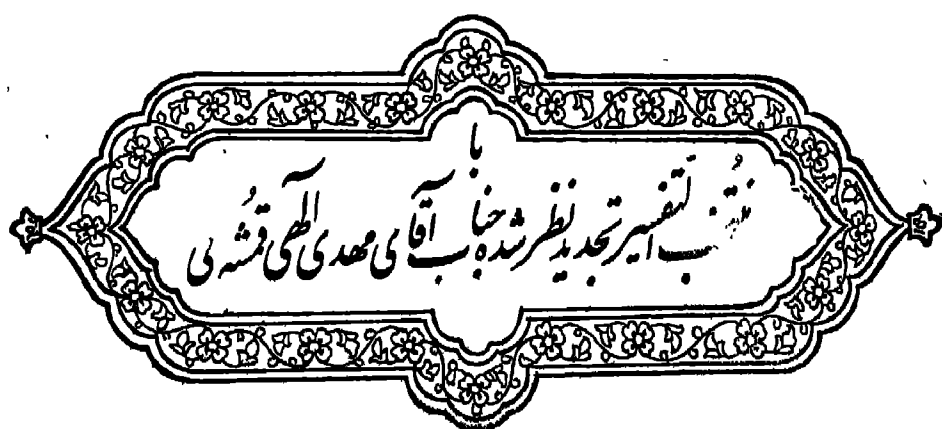 با
منتخب التفسیر تجدید نظر شده جناب آقای مهدی الهی قمشه‌ی